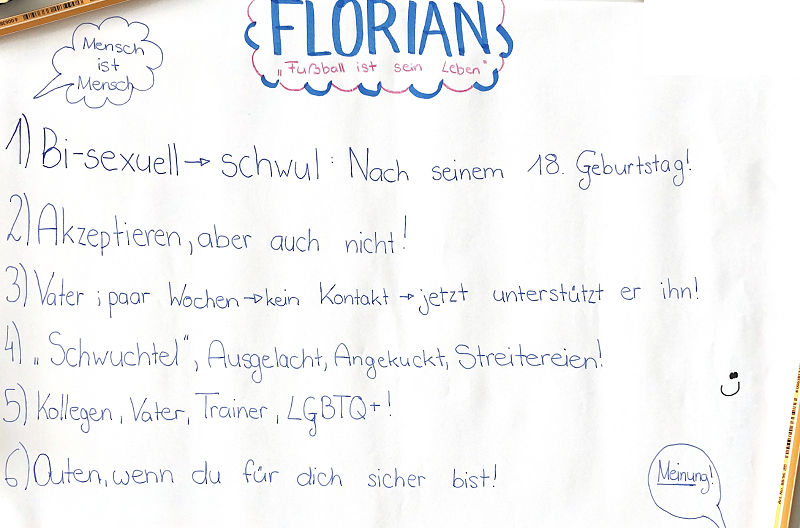 Mensch
ist
Mensch
FLORIAN
"Fußball ist sein Leben"
1) Bi-sexuell → schwul: Nach seinem 18. Geburtstag!
2) Akzeptieren, aber auch nicht!
3) Vater; paar Wochen → kein Kontakt → jetzt unterstützt er ihn!
4) „Schwuchtel", Ausgelacht, Angekuckt, Streitereien!
5) Kollegen, Vater, Trainer, LGBTQ+!
6) Outen, wenn du für dich sicher bist!
Meinung!